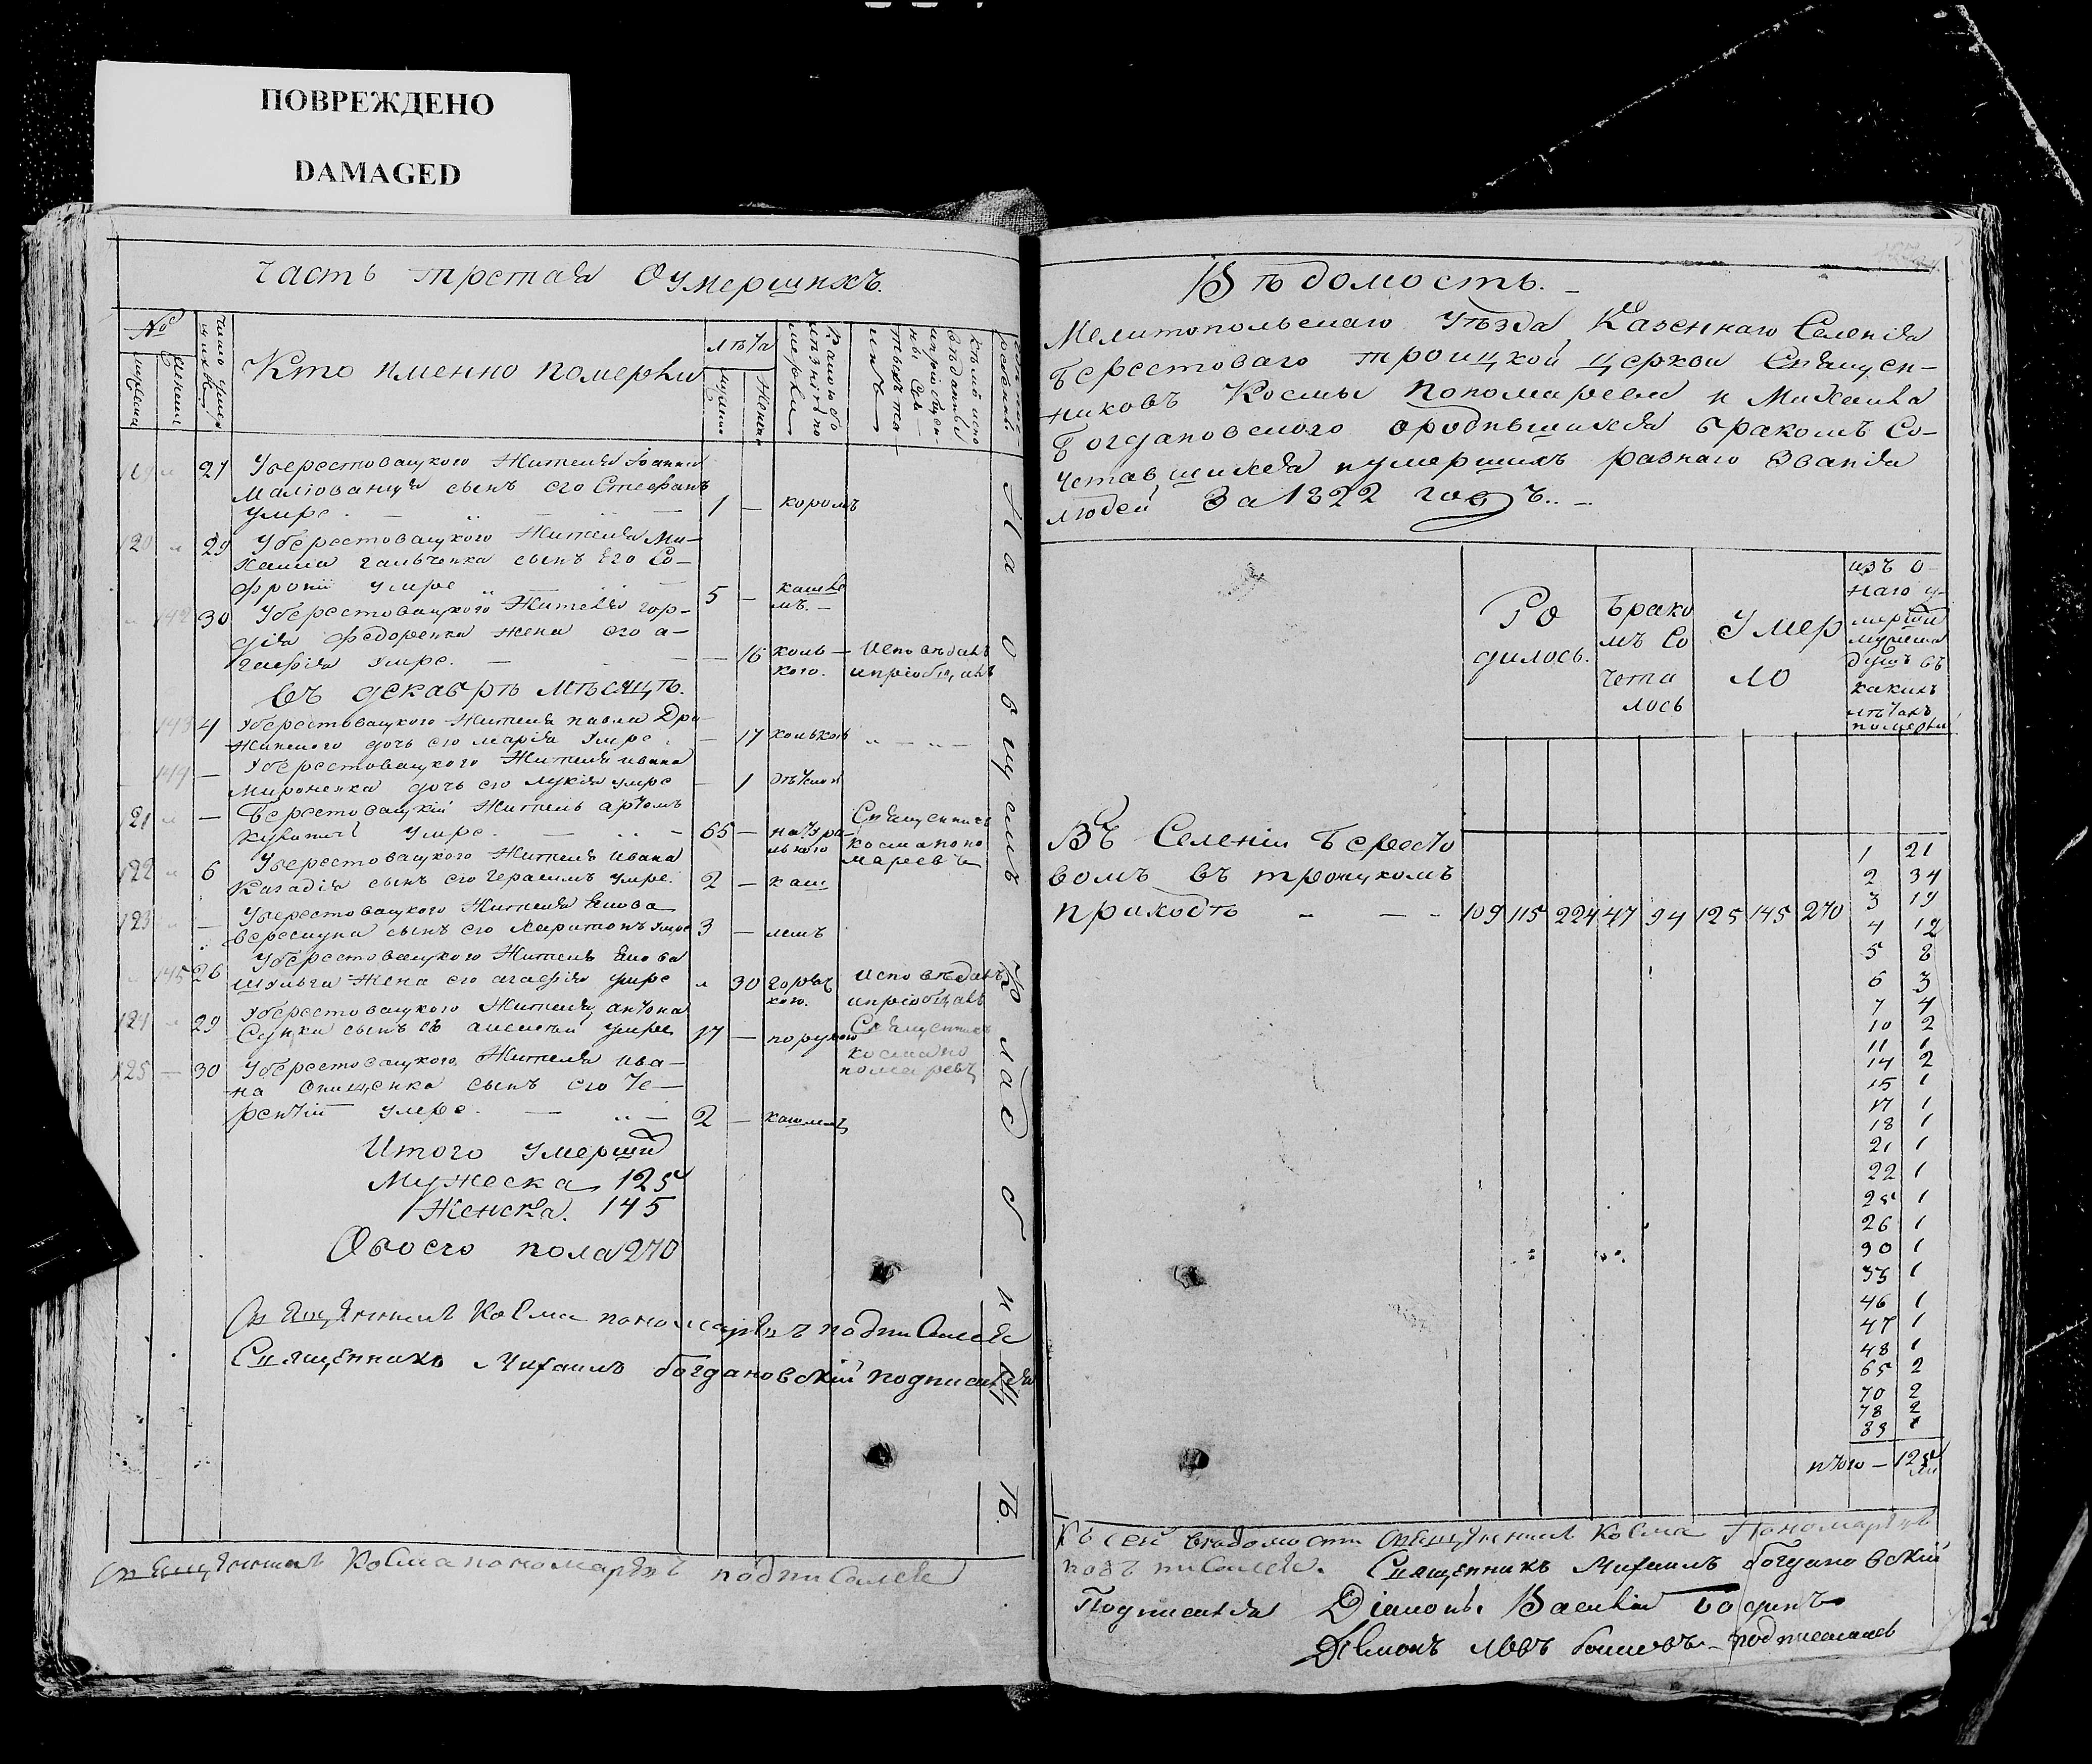 ПОВРЕЖДЕНО
DAMAGED
Часть третая Оумершихъ.
№
Число умер
Кто именно померли
лѣта
мужеска
женска
Какою бо
лѣзнію по
мерли
21 Уберестовацкого Жителя Іоанна
Малюванця сынъ его Стефанъ
умре 1 — коромъ
120 29 Уберестовацкого Жителя Ми-
хаила гальченка сынъ Его Со-
фроній умре 5 — кашле
мъ.
142 30 Уберестовацкого Жителя гор-
дія Федоренка жена его а-
гафія умре. — 16 коль- Исповѣданъ
кого. ипріобщанъ
Въ декабрѣ мѣсяцѣ.
143 4 Уберестовацкого Жителя павла
дочь его марія умре — 17 колькою
144 — Уберестовацкого Жителя ивана
Мироненка дочь его лукія умре — 1
121 — Берестовацкій Житель артомъ
умре. 65 — натура- Священникъ
льного косма поно
маревъ
122 6 Уберестовацкого Жителя ивана
Кагадія сынъ его Герасимъ умре. 2 — каш
123 — Уберестовацкого Жителя Якова
вересуна сынъ его Харитонъ умре 3 — лемъ
145 26 Уберестовацкого Жителя Якова
шульги Жена его агафія умре 30 горяч Исповѣданъ
кою. ипріобщанъ
124 29 Уберестовацкого Жителя антона
сынъ его алексѣй умре 17 — Священникъ
косма по
номаревъ
125 — 30 Уберестовацкого Жителя ива-
на Онищенка сынъ его Те-
рентій умре. 2 — кашлемъ
Итого умерши
Мужеска 125
Женска. 145
Обоего пола 270
На общемъ кладбищѣ.
Священникъ Косма пономаревъ подписался
Священникъ Михаилъ богдановскій подписался
Священникъ Косма пономаревъ подписался
Вѣдомость.
Мелитопольскаго Уѣзда Казеннаго Селенія
Берестоваго троицкой церкви Священ-
никовъ Космы Пономарева и Михаила
Богдановского ородившихся бракомъ Со-
четавшихся иумершихъ разнаго Званія
людей За 1822 годъ.
Ро
дилось.
Брако
мъ Со
чета
лось
Умер
ло
изъ о-
наго у-
мерши
мужеска
душъ въ
какихъ
лѣтахъ
померли
Въ Селеніи Бересто
вомъ въ троицкомъ
приходѣ 109 115 224 47 94 125 145 270
1 21
2 34
3 19
4 12
5 8
6 3
7 4
10 2
11 1
14 2
15 1
17 1
18 1
21 1
22 1
25 1
26 1
30 1
35 1
46 1
47 1
48 1
65 2
70 2
78 2
89 1
итого — 125
Къ сей вѣдомости Священникъ Косма Пономаревъ
подъписался. Священникъ Михаилъ богдановскій
Подписался Діяконъ Василій
Діяконъ подписался